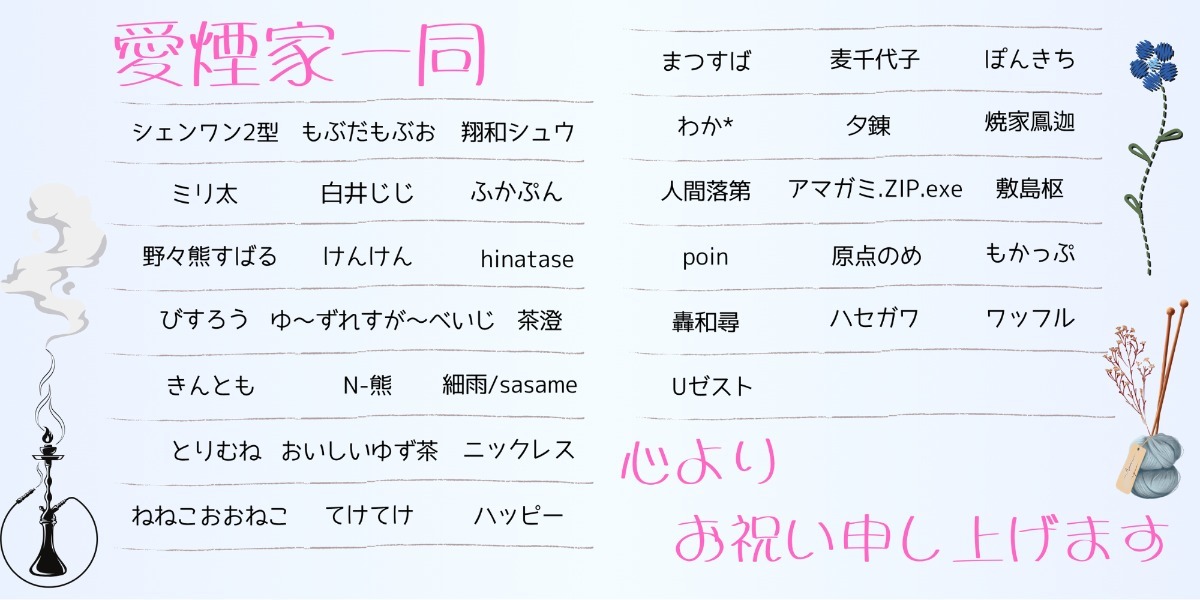 愛煙家一同
シェンワン2型 もぶだもぶお 翔和シュウ
ミリ太 白井じじ ふかぷん
野々熊すばる けんけん hinatase
びすろう ゆ〜ずれすが〜べいじ 茶澄
きんとも N-熊 細雨/sasame
とりむね おいしいゆず茶 ニックレス
ねねこおおねこ てけてけ ハッピー
まつすば 麦千代子 ぽんきち
わか* 夕錬 焼家鳳迦
人間落第 アマガミ.ZIP.exe 敷島枢
poin 原点のめ もかっぷ
轟和尋 ハセガワ ワッフル
Uゼスト
心より
お祝い申し上げます